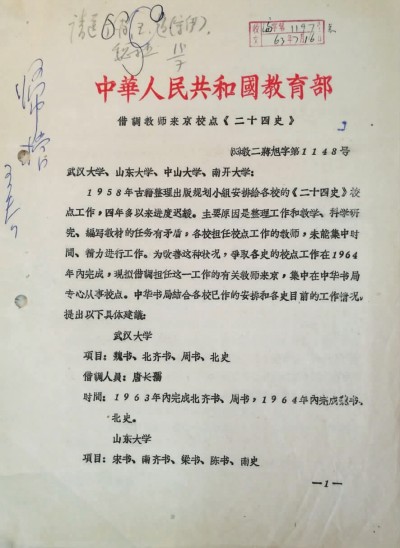 请送
63年7月16日
中華人民共和國教育部
借调教师来京校点《二十四史》
教二蒋旭字第1148号
武汉大学、山东大学、中山大学、南开大学:
1958年古籍整理出版规划小组安排给各校的《二十四史》校
点工作,四年多以来进度迟缓。主要原因是整理工作和教学、科学研
究、编写教材的任务有矛盾,各校担任校点工作的教师,未能集中时
间、精力进行工作。为改善这种状况,争取各史的校点工作在1964
年内完成,现拟借调担任这一工作的有关教师来京,集中在中华书局
专心从事校点。中华书局结合各校已作的安排和各史目前的工作情况,
提出以下具体建議:
武汉大学
项目:魏书、北齐书、周书、北史
借调人员:唐长孺
时间:1963年内完成北齐书、周书,1964年内完成魏书、
北史。
山东大学
项目:宋书、南齐书、梁书、陈书、南史
—1—